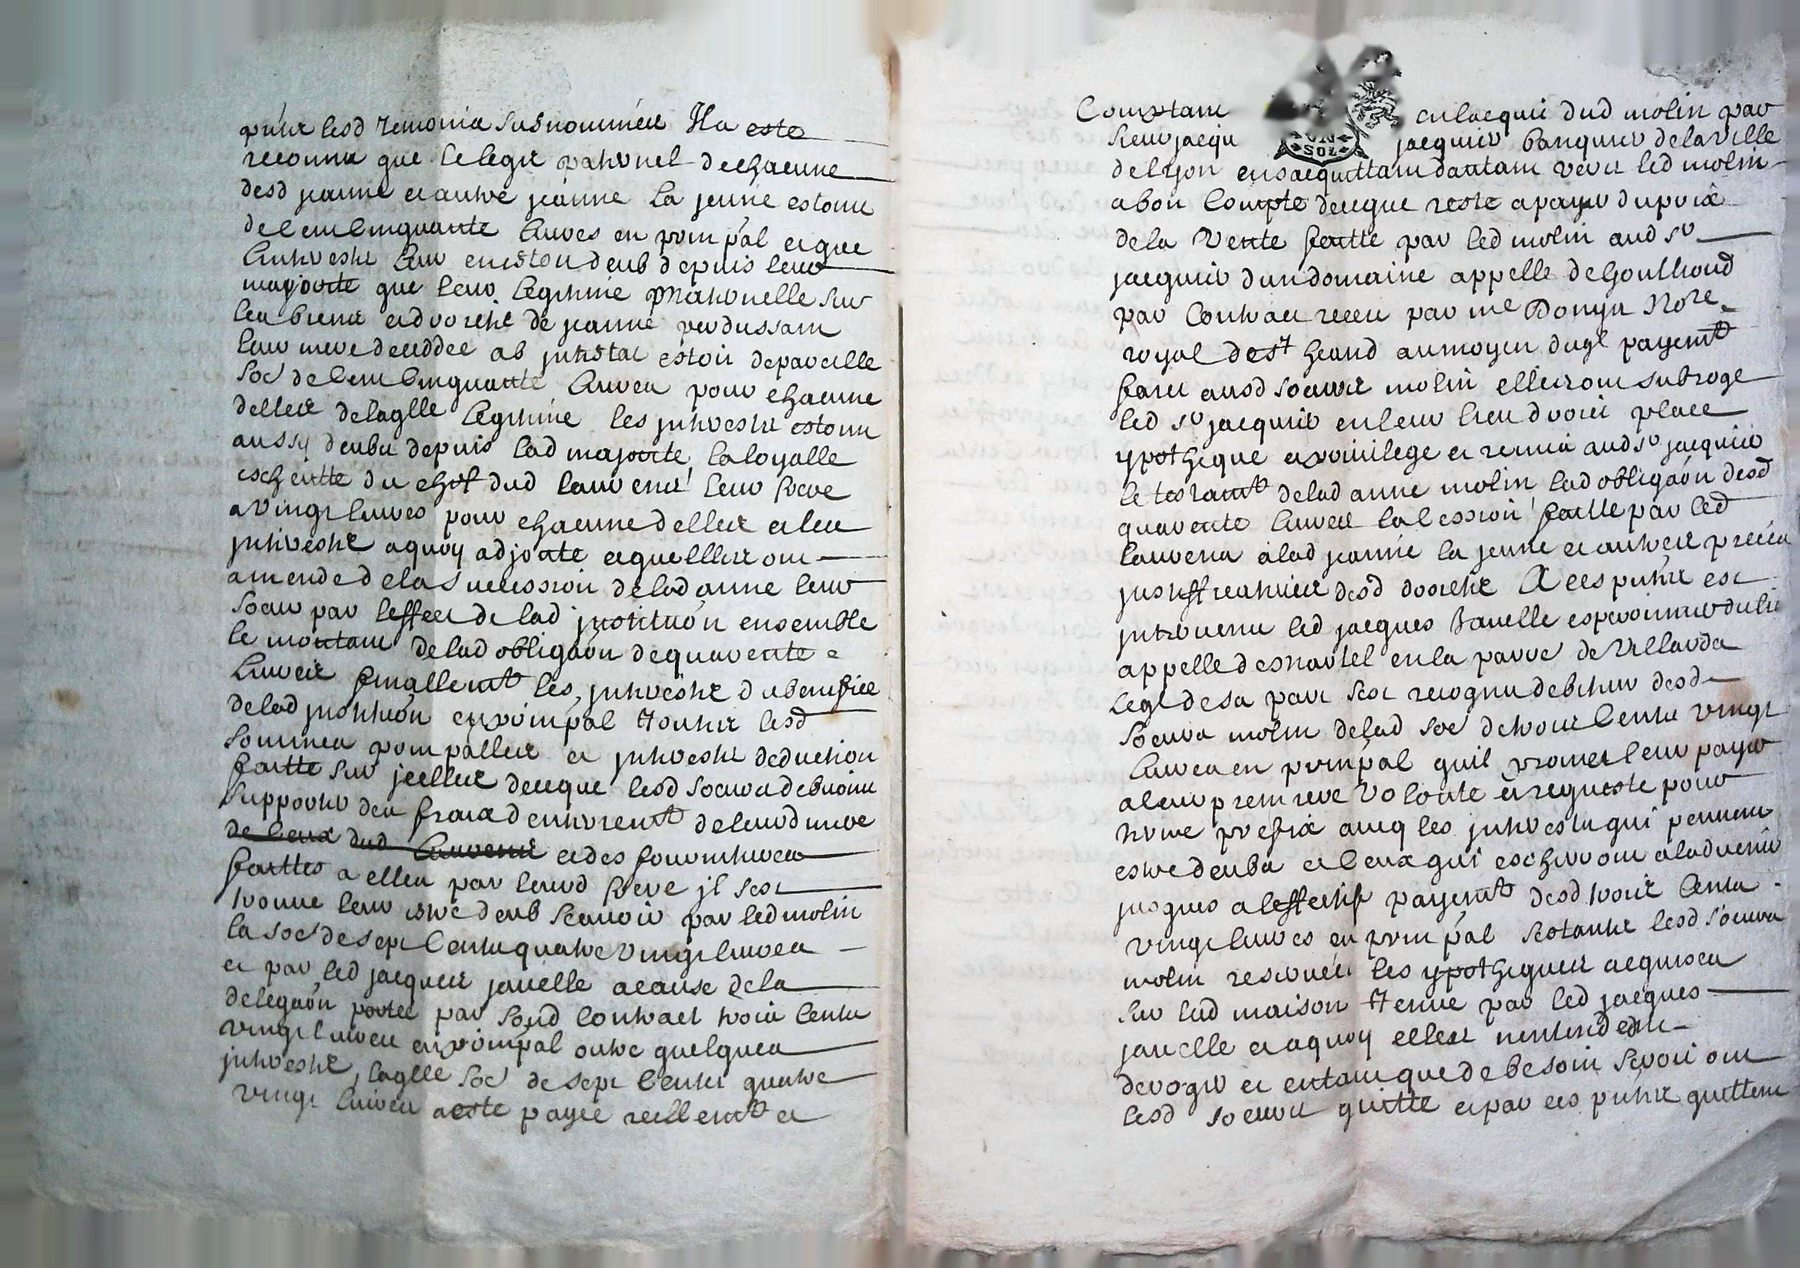 pnte lesd temoins susnommés Il a esté
reconnu que le legit paternel de chacune
desd jeanne et autre jeanne la jeune estoint
de cent cinquante livres en principal et que
linterest leur en estoit deub depuis leur
majorité que leur legitime maternelle sur
les biens et droicts de jeanne verdussant
leur mere decedée ab intestat estoit de pareille
soe de cent cinquante livres pour chacune
delles de laqlle legitime les interests estoint
aussy deubs depuis lad majorité la loyalle
escheutte du chef dud laurens leur frere
a vingt livres pour chacune delles et les
interests a quoy adjouté et quelles ont
amendé de la succession de lad anne leur
soeur par leffect de lad institution ensemble
le montant de lad obligaon de quarente
livres finallemt les interests du beneffice
de lad institution en principal toutes lesd
sommes principalles et interests deduction
faitte sur jcelles de ce que lesd soeurs debvoint
supporter des fraix denterremt de leurd mere
de ceux dud laurens et des fournitures
faittes a elles par leurd frere jl sest
trouvé leur estre deub scavoir par led molin
la soe de sept cents quatre vingt livres
et par led jacques javelle a cause de la
delegaon portée par sond contract trois cents
vingt livres en principal outre quelques
interests, laqlle soe de sept cents quatre
vingt livres a esté payée reellemt et
Comptant en lacquit dud molin par
sieur jacqu jacquier banquier de la ville
de lyon en sacquittant dautant vers led molin
a bon compte de ce que reste a payer du prix
de la vente faitte par led molin aud sr
jacquier dun domaine appellé de Goulhoud
par contract receu par me Donya Nore
royal de st heand au moyen duql payemt
faict ausd soeurs molin elles ont subrogé
led sr jacquier en leur lieu droict place
ypotheque et privilege et remis aud sr jacquier
le testamt de lad anne molin lad obligaon desd
quarente livres la cession faitte par led
laurens a lad jeanne la jeune et autres pieces
justifficatives desd droicts A ces pntes est
intervenu led jacques Javelle
appellé desmartel en la parre de Villards
leql de sa part sest recognu debiteur desd
soeurs molin de lad soe de trois cents vingt
livres en principal quil promet leur payer
a leur premiere volonté et requeste pour
terme prefix avec les interests qui peuvent
estre deubs et ceux qui escherront a ladvenir
jusques a leffectif payemt desd trois cents
vingt livres en principal sestants lesd soeurs
molin reservées les ypotheques acquises
sur lad maison tenue par led jacques
javelle et a quoy elles nentendent
deroger et en tant que de besoin seroit ont
lesd soeurs quitté et par ces pntes quittent